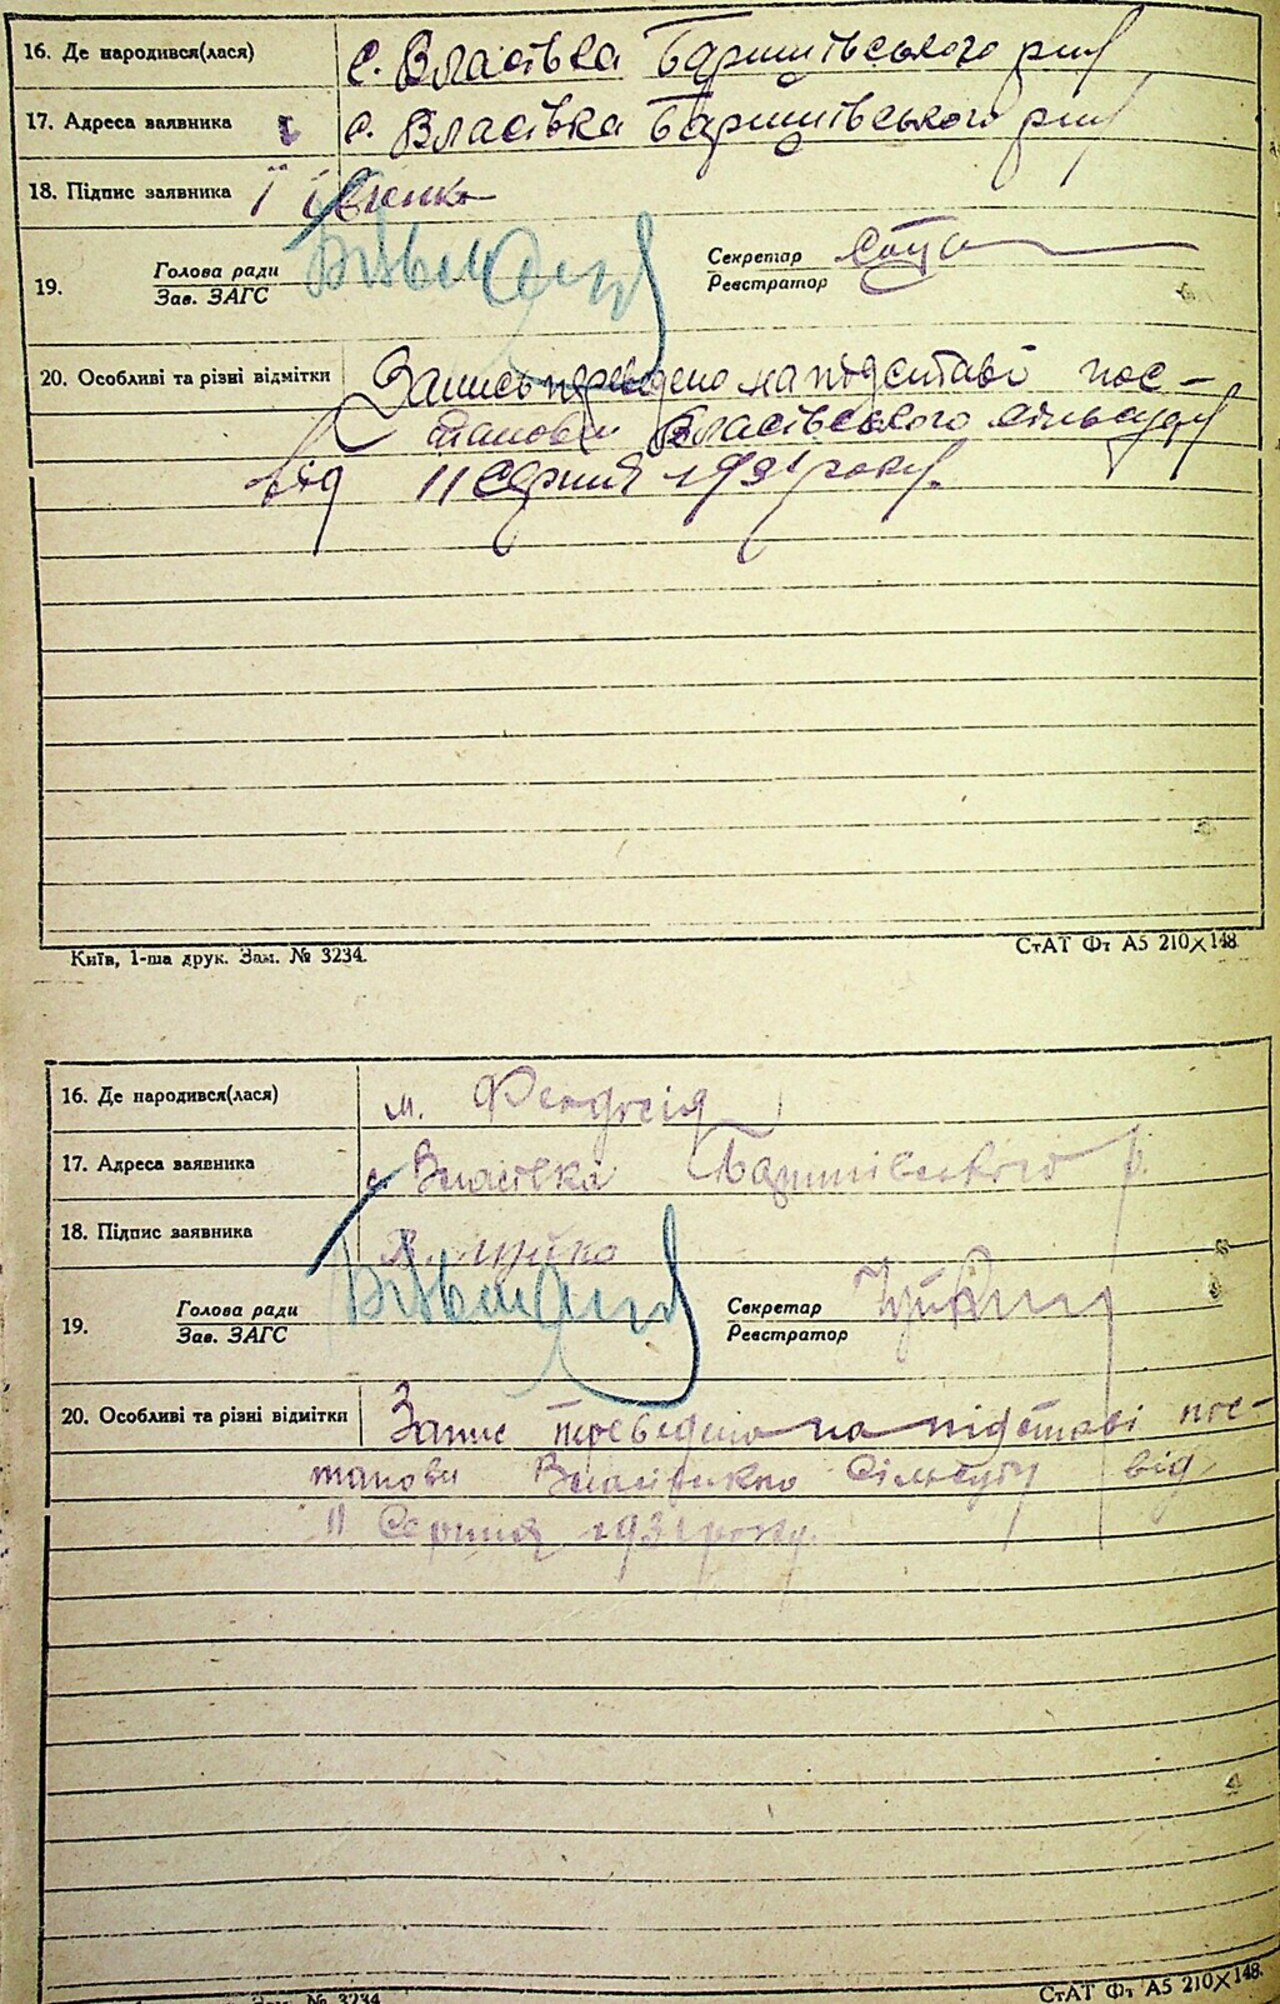 16. Де народився(лася) с. Власівка Баришівського р-ну
17. Адреса заявника с. Власівка Баришівського р-ну
18. Підпис заявника
19. Голова ради
Зав. ЗАГС
Секретар
Реєстратор
20. Особливі та різні відмітки Запись переведено на підставі пос-
танови Власівського сільсуду
від 11 Серпня 1931 року.
Київ, 1-ша друк. Зам. № 3234.
СтАТ Фт А5 210×148
16. Де народився(лася) м. Феодосія
17. Адреса заявника с. Власівка Баришівського р.
18. Підпис заявника
19. Голова ради
Зав. ЗАГС
Секретар
Реєстратор
20. Особливі та різні відмітки Запис переведено на підставі пос-
танови сільсуду від
11 Серпня 1931 року.
Зам. № 3234
СтАТ Фт А5 210×148.